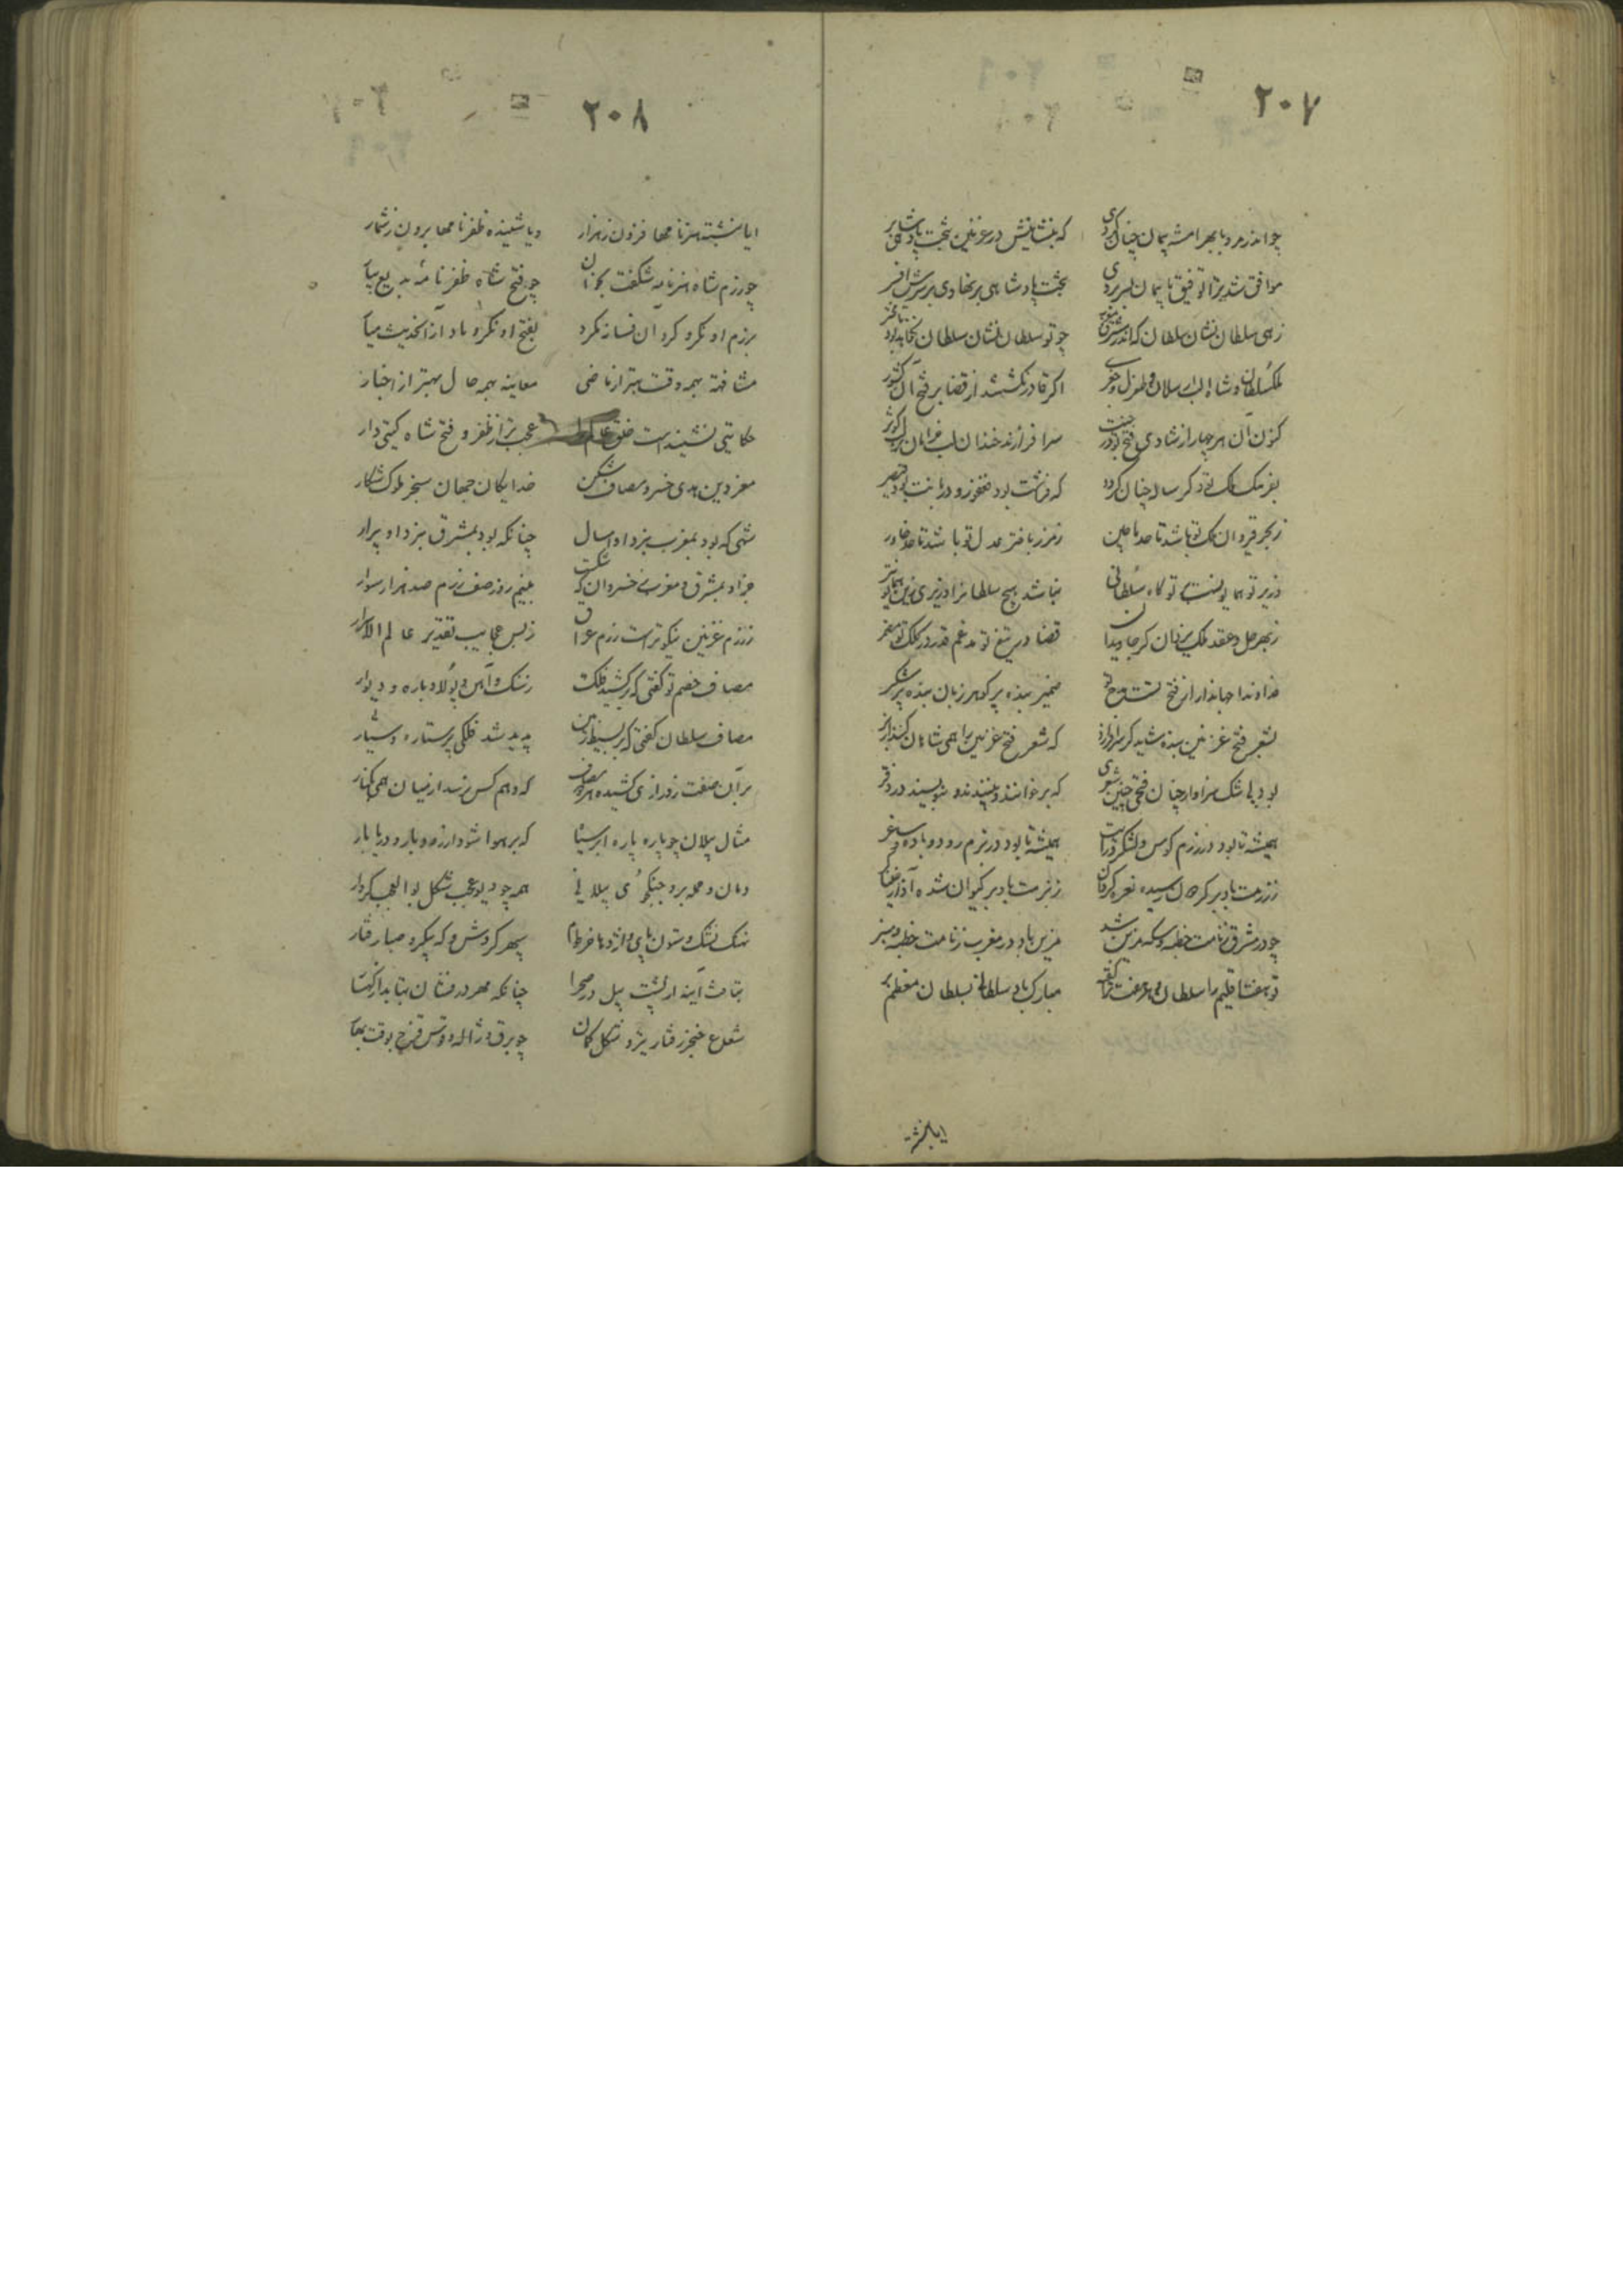 ۲۰۷
چو اندر مرو با بهرامشه پیمان چنان کردی که بنشانیش در غزنین بتخت پادشاهی بر
موافق شد ترا توفیق تا پیمان بسر بردی بتخت پادشاهی بر نهادی بر سرش افسر
زهی سلطان نشان سلطان که اندر مشرق و مغرب چو تو سلطان نشان سلطان کجا بد یا بود دیگر
ملکسلطان و شاه الب ارسلان و طغرل و جغری اگر قادر نگشتند از قضا بر فتح آن کشور
کنون آن هر چهار از شادی فتح تو در جنت سرافرازند خندان لب خرامان بر لب کوثر
بفر ملک
ز بحر قیروان ملک تو باشد تا حد ماچین ز مرز باختر عدل تو باشد تا حد خاور
وزیر تو همایونست تو گاه سلطانی نباشد هیچ سلطانرا وزیری زین همایونتر
ز بهر حل و عقد ملک یزدان کرد جاویدان قضا در تیغ تو مدغم قدر در کلک تو مضمر
خداوندا جهاندارا ز فتح تست و مدح تو ضمیر بنده پر گوهر زبان بنده پر شکر
بشعر فتح غزنین بنده شاید گر سرافرازد که شعر فتح غزنین را همی شاهان کنند از بر
بود بی شک سزاوار چنان فتحی چنین شعری که برخوانند و بپسندند و بنویسند در دفتر
همیشه تا بود در رزم کوس و لشکر و رایت همیشه تا بود در بزم رود و باده و ساغر
ز رزمت باد بر گردون رسیده نعره گردان ز بزمت باد بر کیوان شده آواز خنیاگر
چو در مشرق ز نامت خطبه و سکه مزین شد مزین باد در مغرب ز نامت خطبه و منبر
تو هفت اقلیم را سلطان مبارک باد سلطانی بسلطان معظم بر
ایا نبشته
۲۰۸
ایا نبشته هنرنامها فزون ز هزار و یا شنیده ظفرنامها برون ز شمار
چو رزم شاه هنرنامه شگفت بخوان چو فتح شاه ظفرنامه بدیع بیار
برزم او نگر و گرد آن فسانه مگرد بفتح او نگر و یاد از آن حدیث میار
مشافهه همه وقت بهتر از ماضی معاینه همه حال بهتر از اخبار
حکایتی نشنیدست خلق عالم عجب‌تر از ظفر و فتح شاه گیتی دار
معز دین هدی خسرو مصاف شکن خدایگان جهان سنجر ملوک شکار
شهی که بود بمغرب نبرد او امسال چنانکه بود بمشرق نبرد او پرار
جز او بمشرق و مغرب ز خسروان که شکست بنیم روز صف رزم صد هزار سوار
ز رزم غزنین نیکوترست رزم عراق ز بس عجایب تقدیر عالم الاسرار
مصاف خصم تو گفتی که برکشید فلک ز سنگ و آهن و پولاد باره و دیوار
مصاف سلطان گفتی که بر بسیط زمین پدید شد فلکی پر ستاره و سیار
بر آن صفت ز درازی کشیده هر دو مصاف که وهم کس نرسد از میان همی بکنار
مثال پیلان چو پاره پاره ابر سیاه که بر هوا شود از رود بار و دریا بار
دمان و حمله بر و جنگجوی پیلانی همه چو دیو عجب شکل بوالعجب کردار
نهنگ نشک و ستون پای و اژدها خرطوم سپهر گردش و که پیکر و صبا رفتار
بتافت آینه از پشت پیل در صحرا چنانکه مهر درفشان بتابد از کهسار
شعاع خنجر و رفتار تیر و شکل کمان چو برق و ژاله و قوس قزح بوقت بهار